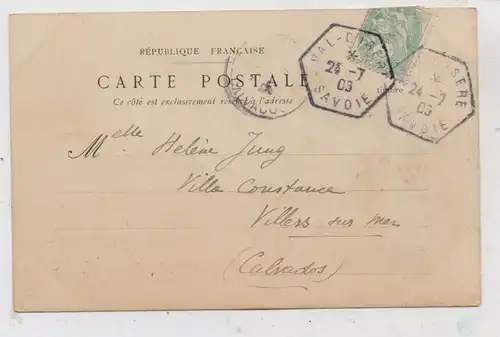 RÉPUBLIQUE FRANÇAISE
CARTE POSTALE
Ce côté est exclusivement l'adresse
VAL-D'ISÈRE
24 -7
03
SAVOIE
ISÈRE
24 -7
03
SAVOIE
CALVADOS
Melle Hélène Jung
Villa Constance
Villers sur mer
(Calvados)